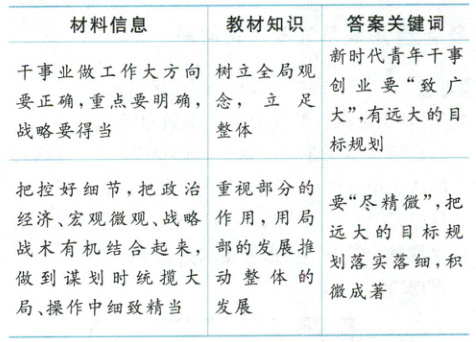 材料信息 教材知识 答案关键词
干事业做工作大方向
要正确,重点要明确,
战略要得当
树立全局观
念,立足
整体
新时代青年干事
创业要“致广
大”,有远大的目
标规划
把控好细节,把政治
经济、宏观微观、战略
战术有机结合起来,
做到谋划时统揽大
局、操作中细致精当
重视部分的
作用,用局
部的发展推
动整体的
发展
要“尽精微”,把
远大的目标规
划落实落细,积
微成著